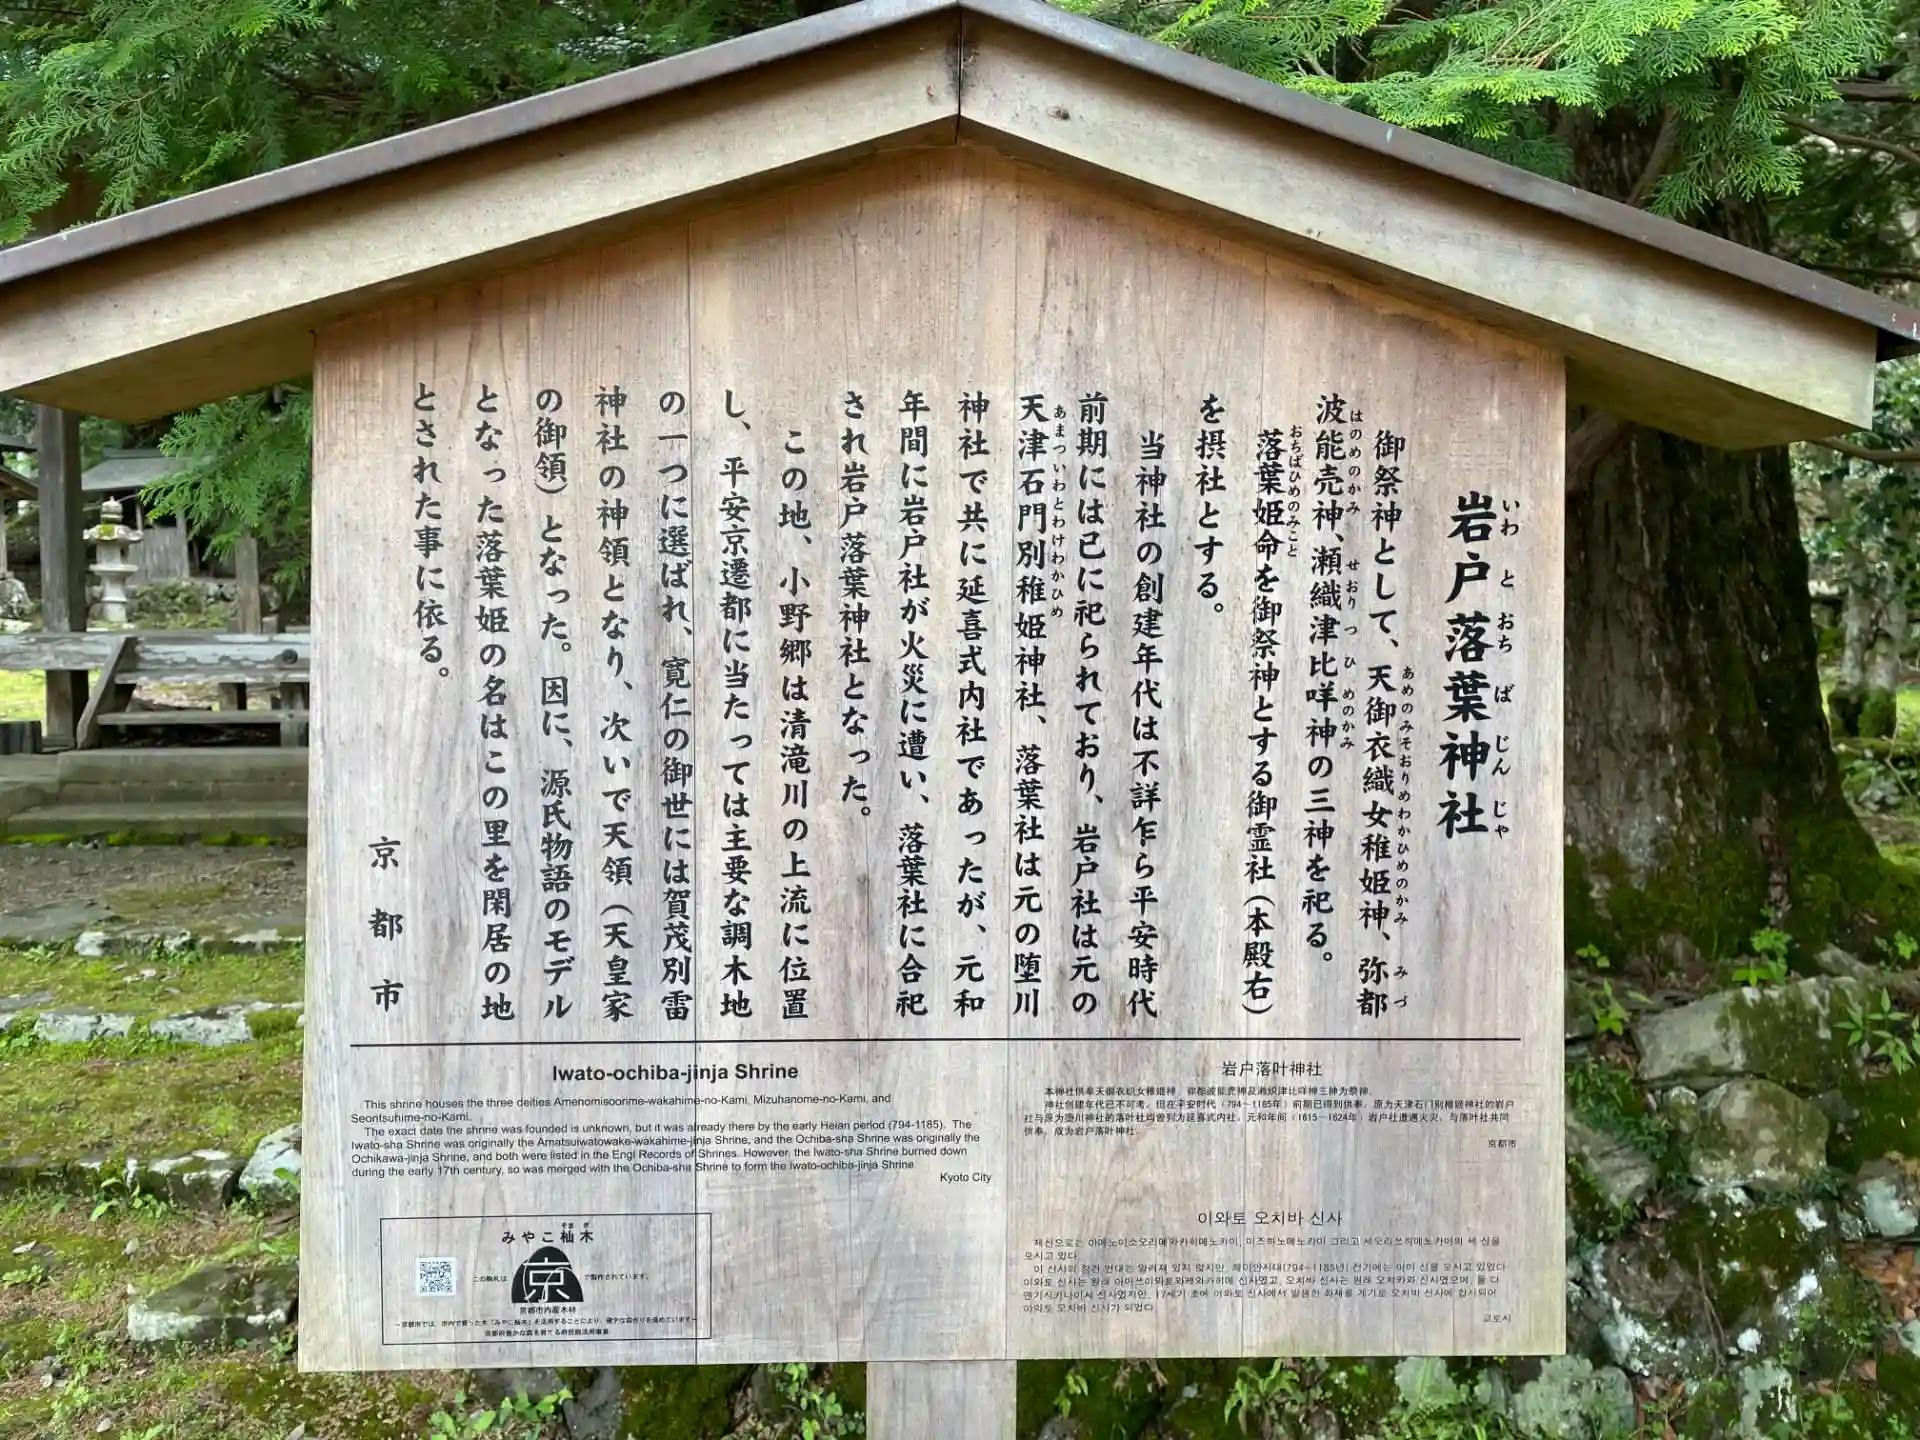 岩戸落葉神社
いわ と おち ば じん じゃ
御祭神として、天御衣織女稚姫神、弥都
あめのみそおりめわかひめのかみ みづ
波能売神、瀬織津比咩神の三神を祀る。
はのめのかみ せおりつひめのかみ
落葉姫命を御祭神とする御霊社（本殿右）
おちばひめのみこと
を摂社とする。
当神社の創建年代は不詳乍ら平安時代
前期には已に祀られており、岩戸社は元の
天津石門別稚姫神社、落葉社は元の堕川
あまついわとわけわかひめ
神社で共に延喜式内社であったが、元和
年間に岩戸社が火災に遭い、落葉社に合祀
され岩戸落葉神社となった。
この地、小野郷は清滝川の上流に位置
し、平安京遷都に当たっては主要な調木地
の一つに選ばれ、寛仁の御世には賀茂別雷
神社の神領となり、次いで天領（天皇家
の御領）となった。因に、源氏物語のモデル
となった落葉姫の名はこの里を閑居の地
とされた事に依る。
京都市
Iwato-ochiba-jinja Shrine
This shrine houses the three deities Amenomisoorime-wakahime-no-Kami, Mizuhanome-no-Kami, and
Seoritsuhime-no-Kami.
The exact date the shrine was founded is unknown, but it was already there by the early Heian period (794-1185). The
Iwato-sha Shrine was originally the Amatsuiwatowake-wakahime-jinja Shrine, and the Ochiba-sha Shrine was originally the
Ochikawa-jinja Shrine, and both were listed in the Engi Records of Shrines. However, the Iwato-sha Shrine burned down
during the early 17th century, so was merged with the Ochiba-sha Shrine to form the Iwato-ochiba-jinja Shrine
Kyoto City
岩户落叶神社
本神社供奉天御衣织女稚姬神、弥都波能売神及濑织津比咩神三神为祭神。
神社创建年代已不可考，但在平安时代（794～1185年）前期已得到供奉，原为天津石门别稚姬神社的岩户
社与原为堕川神社的落叶社均曾列为延喜式内社。元和年间（1615～1624年）岩户社遭遇火灾，与落叶社共同
供奉，成为岩户落叶神社
京都市
이와토 오치바 신사
제신으로는 아메노미소오리메와카히메노카미, 미즈하노메노카미 그리고 세오리쓰히메노카미의 세 신을
모시고 있다.
이 신사의 창건 연대는 알려져 있지 않지만, 헤이안시대(794～1185년) 전기에는 이미 신을 모시고 있었다
이와토 신사는 원래 아마쓰이와토와케와카히메 신사였고, 오치바 신사는 원래 오치카와 신사였으며, 둘 다
엔기시키나이샤 신사였지만, 17세기 초에 이와토 신사에서 발생한 화재를 계기로 오치바 신사에 합사되어
이와토 오치바 신사가 되었다
교토시
みやこ杣木
そま ぎ
この駒札は 京 で製作されています。
京都市内産木材
～京都市では、市内で育った木「みやこ杣木」を活用することにより、健全な森作りを進めています～
京都府豊かな森を育てる府民税活用事業